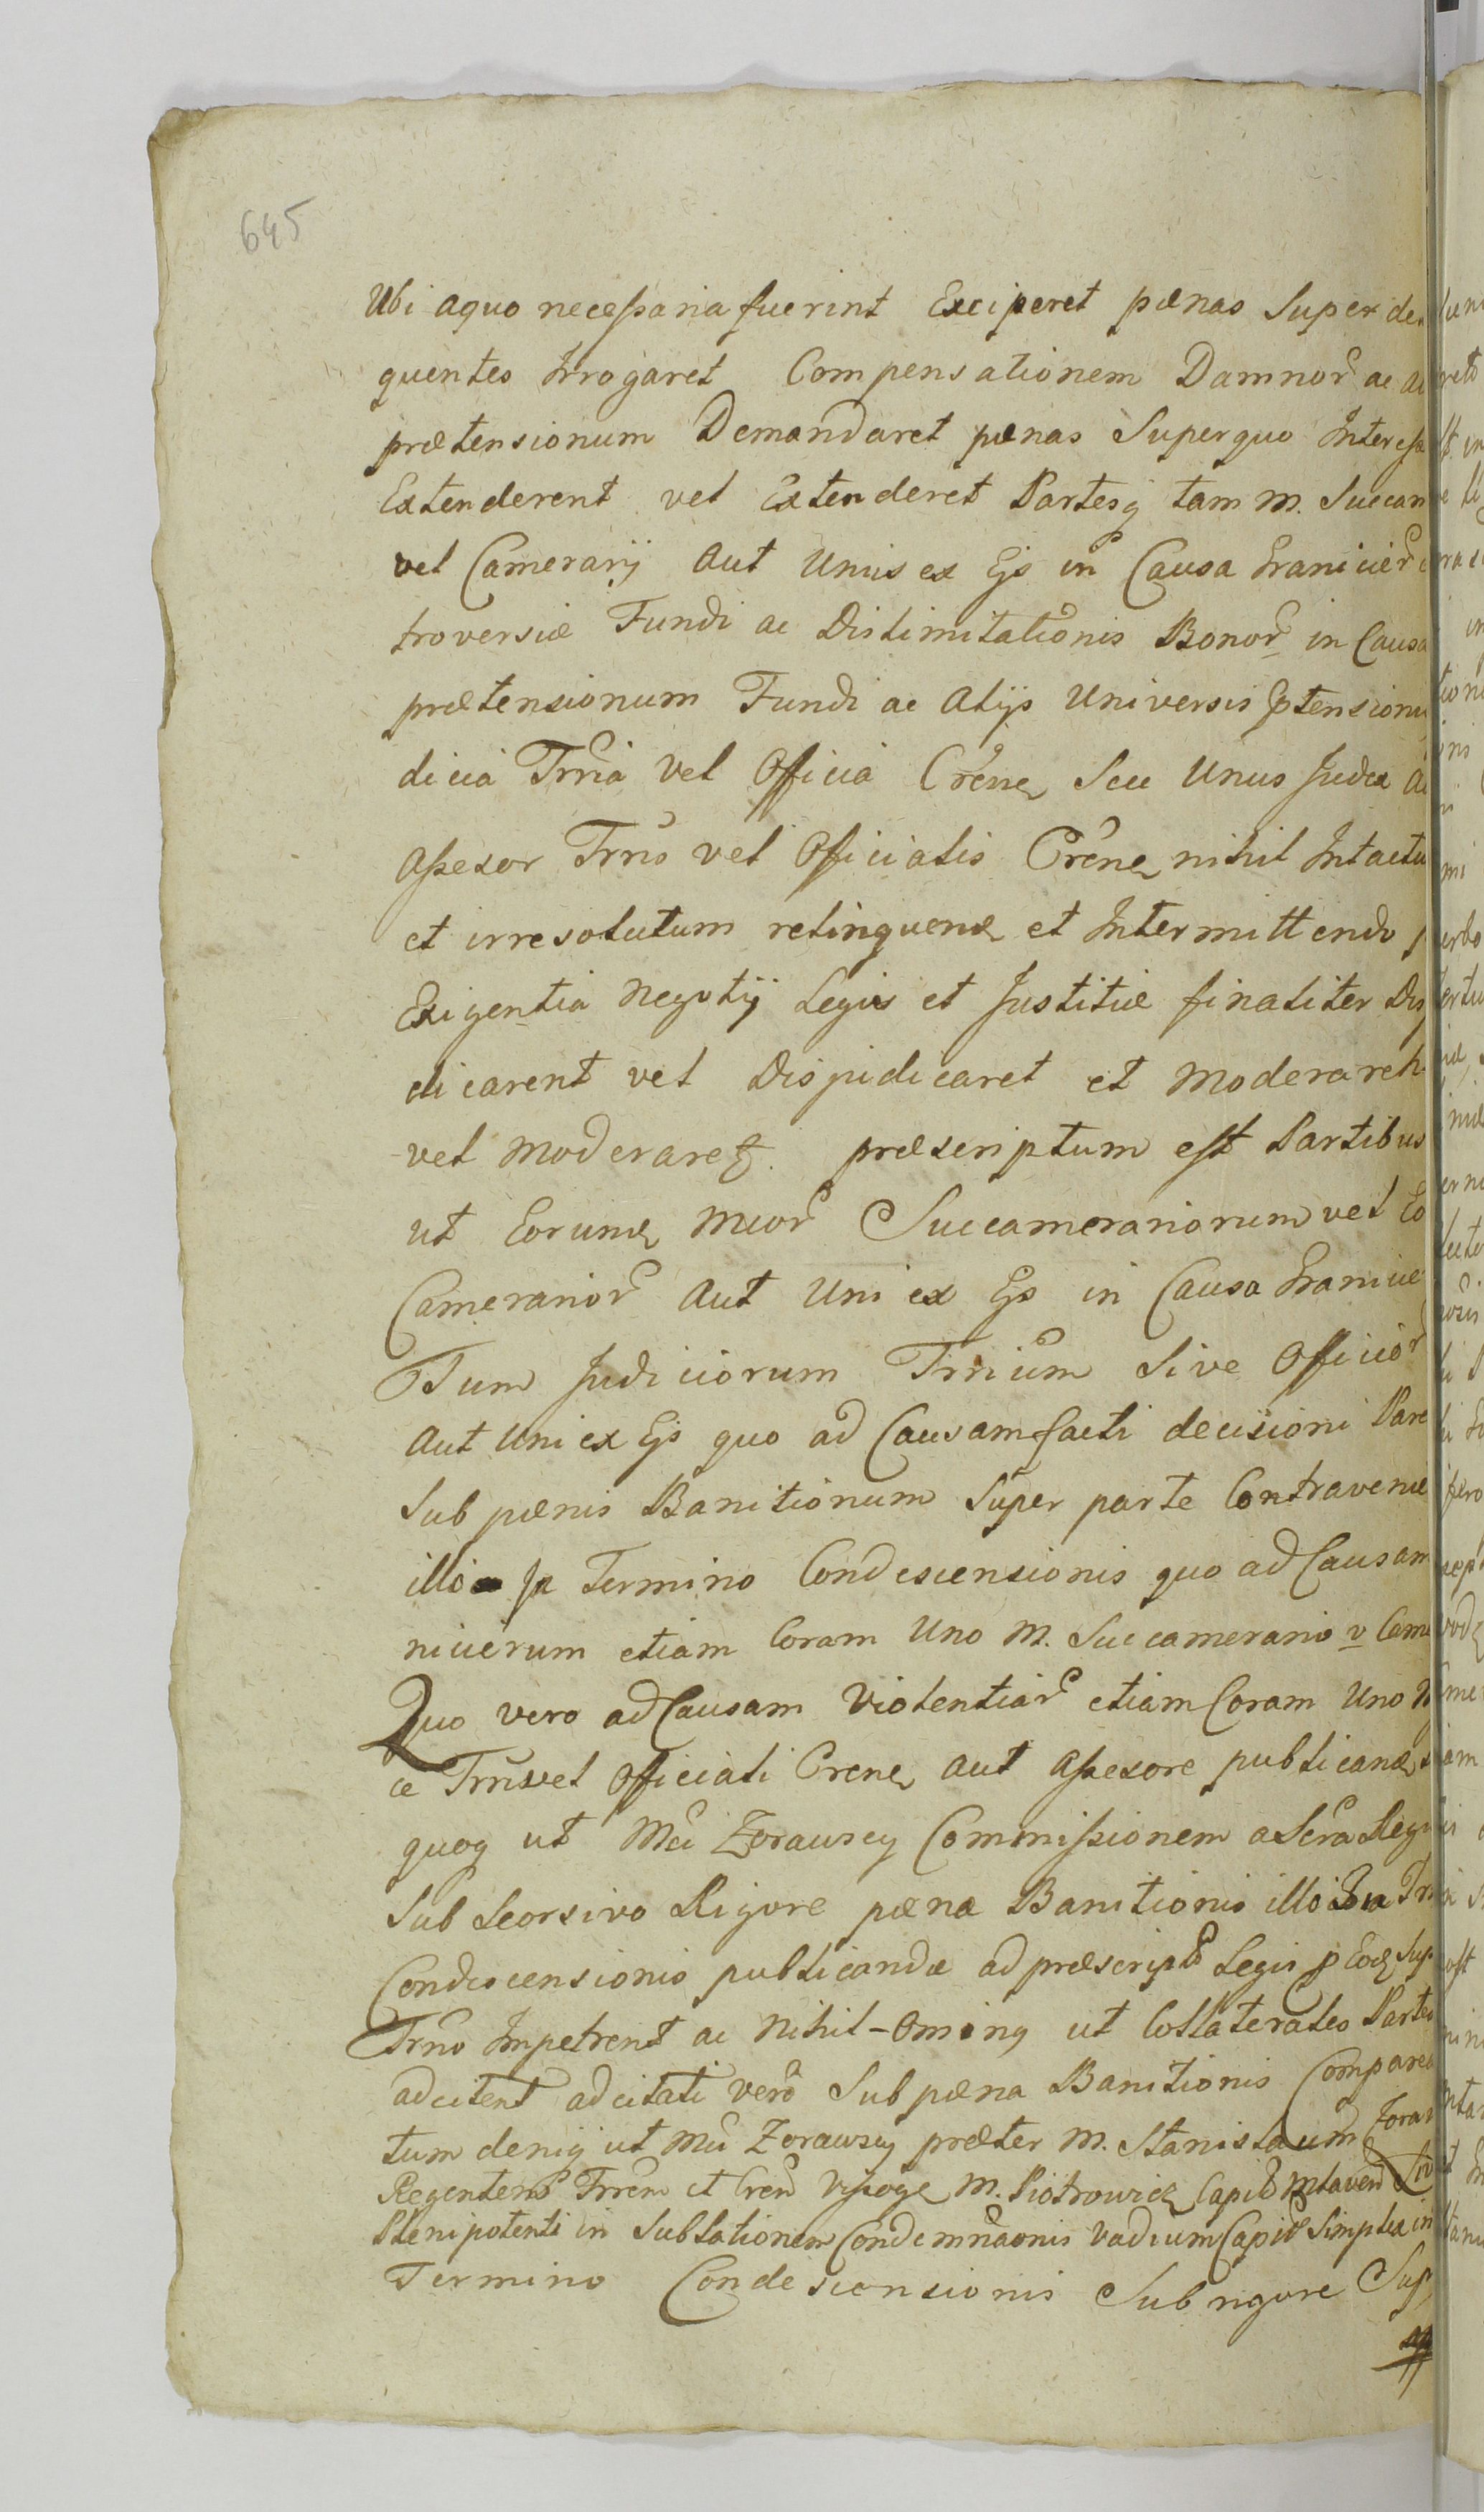 645
Ubi aquo necessaria fuerint Exciperet pænas Super de
quentes Irrogaret Compensationem Damnor ac
prætensionum Demandaret pænas Superquo Interesse
Extenderent vel Extenderet Partesq tam M. Succam
vel Camerarij aut Unus ex Ejs in Causa Granicier
troversiæ Fundi ac Distimitationis Bonor in Causa
prætensionum Fundi ac alijs Universis ptensioni
dicia Trria vel Officia Crene Seu Unus Judex
assesor Trris vel Officialis Crene nihil Intactu
et irresolutum relinquen et Intermittendo
Exigentia Negotij Legis et Justitiæ finaliter Dis
dicarent vel Disjudicaret et Moderaren
vel Moderaret præscriptum est Partibus
ut Eorum Mcor Succamerariorum vel Eo
Camerarior aut Uni ex Ejs in Causa Granicie
Tum Judiciorum Trrium Sive Officior
aut Uni ex Ejs quo ad Causam facti decisioni Pare
Sub pænis Banitionum Super parte Contraven
illo Termino Condescensionis quo ad Causam
nicierum etiam Coram Uno M. Succamerario v Came
Quo vero ad Causam Violentiar etiam Coram Uno
ce Trris vel Officiali Crene aut assesore publican
quoq ut Mci Zorawscy Commissionem a Scra Regi
Sub Seorsivo Rigore pæna Banitionis illo
Condescensionis publicandæ ad præscript Legis p Eod Sup
Trno Impetrent ac Nihil-Ominq ut Collaterales Partes
adcitent adcitati vero Sub pæna Banitionis Compare
tum deniq ut Mci Zorawscy præter M. Stanislaum Zoraw
Regentem Trrem et Cren M. Piotrowicz Capit
Plenipotenti in Sublationem Condemnaonis Vadium Capit Simplex in
Termino Condescensionis Sub rigore Sup